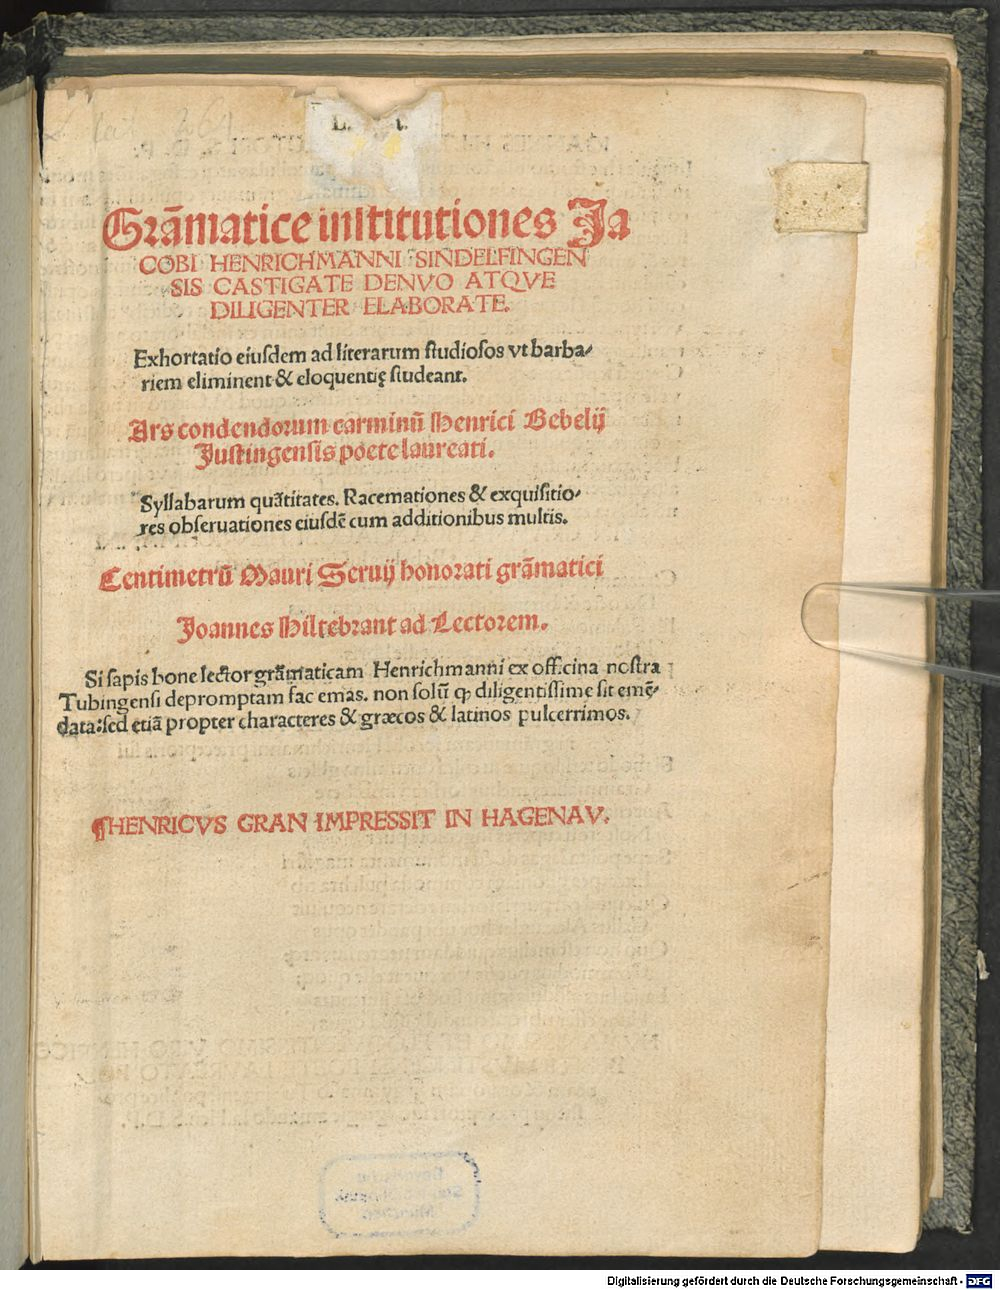 Grãmatice institutiones Ja
COBI HENRICHMANNI SINDELFINGEN
SIS CASTIGATE DENVO ATQVE
DILIGENTER ELABORATE.
Exhortatio eiusdem ad literarum studiosos vt barba-
riem eliminent & eloquentię studeant.
Ars condendorum carminũ Henrici Bebelij
Justingensis poete laureati.
Syllabarum quãtitates. Racemationes & exquisitio-
res obseruationes eiusdẽ cum additionibus multis.
Centimetrũ Mauri Seruij honorati grãmatici
Joannes Hiltebrant ad Lectorem.
Si sapis bone lector grãmaticam Henrichmanni ex officina nostra
Tubingensi depromptam fac emas. non solũ ꝙ diligentissime sit emẽ-
data: sed etiã propter characteres & græcos & latinos pulcerrimos.
¶HENRICVS GRAN IMPRESSIT IN HAGENAV.
Digitalisierung gefördert durch die Deutsche Forschungsgemeinschaft - DFG